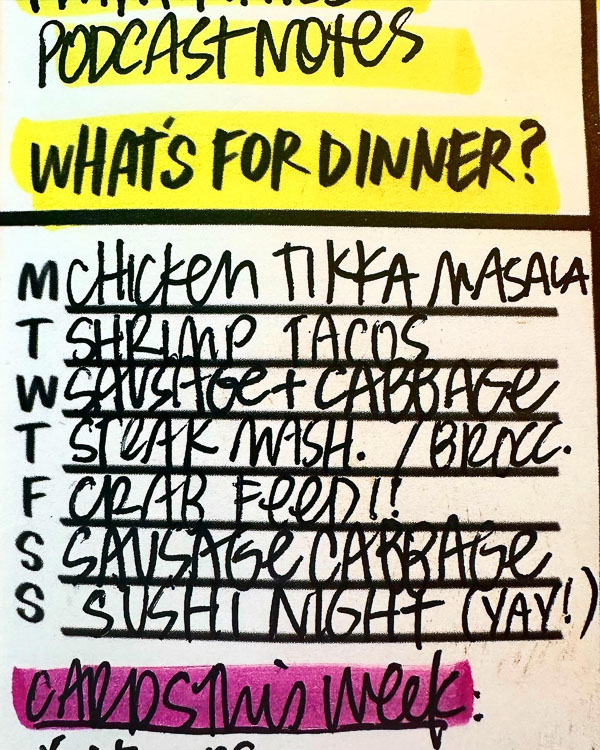 PODCAST NOTES
WHAT'S FOR DINNER?
M CHICKEN TIKKA MASALA
T SHRIMP TACOS
W SAUSAGE + CABBAGE
T STEAK MASH. / BROCC.
F CRAB FEED!!
S SAUSAGE CABBAGE
S SUSHI NIGHT (YAY!)
CARDS THIS WEEK: